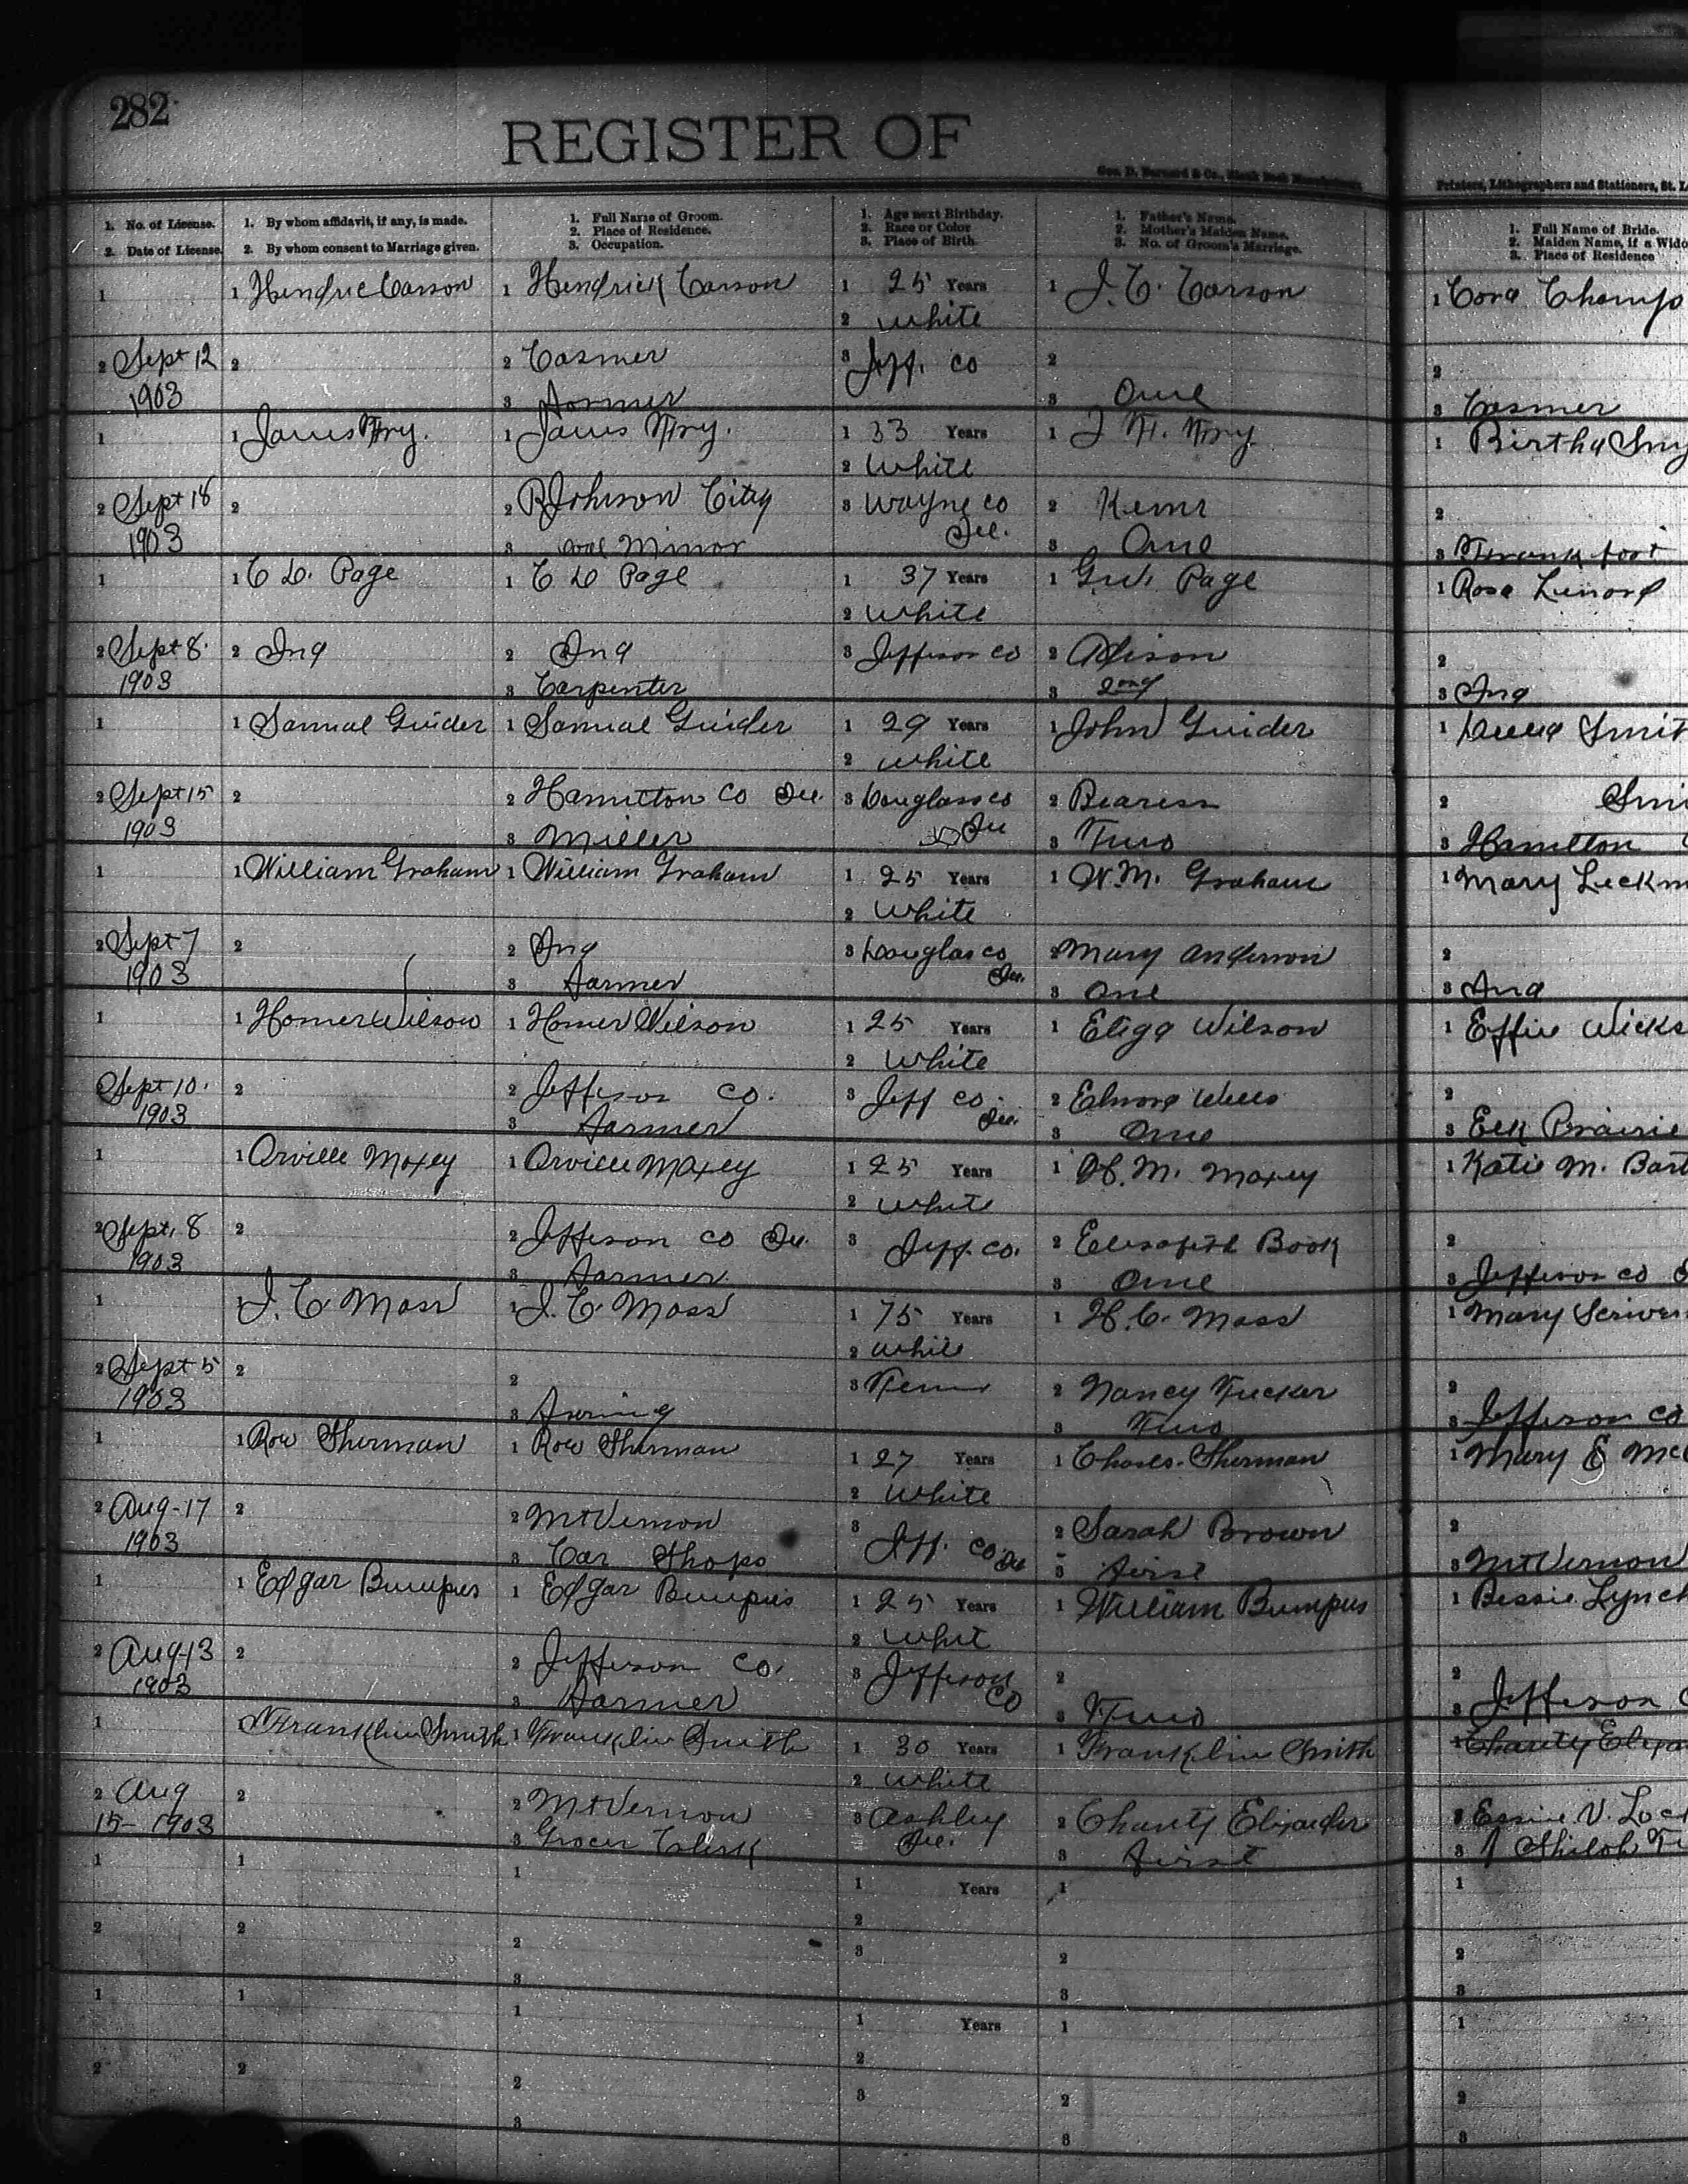 282
REGISTER OF
Geo. D. Barnard & Co., Blank Book Manufacturers,
Printers, Lithographers and Stationers, St. L
1. No. of License.
2. Date of License.
1. By whom affidavit, if any, is made.
2. By whom consent to Marriage given.
1. Full Name of Groom.
2. Place of Residence.
3. Occupation.
1. Age next Birthday.
2. Race or Color
3. Place of Birth.
1. Father's Name.
2. Mother's Maiden Name.
3. No. of Groom's Marriage.
1. Full Name of Bride.
2. Maiden Name, if a Wido
3. Place of Residence
1 1 Hendric Carson 1 Hendrick Carson 1 25 Years 1 J. C. Carson 1 Cora Champ
2 White
2 Sept 12 2 2 Casner 3 Jeff. Co 2 2
1903 3 Farmer 3 One 3 Casner
1 1 Fry. 1 Fry. 1 33 Years 1 Fry. 1 Birtha Sny
2 White
2 Sept 18 2 2 Johnson City 3 Wayne Co 2 2
1903 3 Coal Minor Ill. 3 One 3 Frankfort
1 1 C D. Page 1 C D Page 1 37 Years 1 G.W. Page 1 Rosa Lenord
2 White
2 Sept 8. 2 Ina 2 Ina 3 Jefferson Co 2 Alison 2
1903 3 Carpenter 3 2ond 3 Ina
1 1 Samual Guider 1 Samual Guider 1 29 Years 1 John Guider 1 Smit
2 White
2 Sept 15 2 2 Hamilton Co Ill. 3 Douglass Co 2 2 Smi
1903 3 Miller Ill 3 Two 3 Hamilton
1 1 William Graham 1 William Graham 1 25 Years 1 W.M. Graham 1 Mary Leckm
2 White
2 Sept 7 2 2 Ina 3 Douglas Co 2 Mary Anderson 2
1903 3 Farmer Ill. 3 One 3 Ina
1 1 Homer Wilson 1 Homer Wilson 1 25 Years 1 Eliga Wilson 1 Effie Wicks
2 White
Sept 10. 2 2 Jefferson Co. 3 Jeff Co. 2 Elnora Wells 2
1903 3 Farmer Ill. 3 One 3 Elk Prairie
1 1 Orville Maxey 1 Orville Maxey 1 25 Years 1 H. M. Maxey 1 Katie M. Bart
2 White
2 Sept. 8 2 2 Jefferson Co Ill. 3 Jeff. Co. 2 Elisabeth Book 2
1903 3 Farmer. 3 One 3 Jefferson Co
1 1 J. C. Moss 1 J. C. Moss 1 75 Years 1 H. C. Moss 1 Mary Scriven
2 Whit
2 Sept 5 2 2 3 Tenn 2 Nancy Tucker 2
1903 3 3 Two 3 Jefferson Co
1 1 Roe Sherman 1 Roe Sherman 1 27 Years 1 Charles Sherman 1 Mary E McC
2 White
2 Aug-17 2 2 Mt Vernon 3 Jeff. Co. Ill 2 Sarah Brown 2
1903 3 Car Shops 3 First 3 Mt Vernon
1 1 Edgar Bumpus 1 Edgar Bumpus 1 25 Years 1 William Bumpus 1 Bessie Lynch
2 Whit
2 Aug-13 2 2 Jefferson Co. 3 Jefferson Co 2 2
1903 3 Farmer 3 Two 3 Jefferson C
1 1 Franklin Smith 1 Franklin Smith 1 30 Years 1 Franklin Smith 1 Charity Elexa
2 White
2 Aug 2 2 Mt Vernon 3 Ashley 2 Charity Elixander 2 Essie V. Loc
15- 1903 3 Grocer Clerk Ill. 3 First 3 Shiloh
1 1 1 1 Years 1 1
2 2 2 2
3 3 2 2
3 3
1 1 1 1 Years 1 1
2 2 2 2
3 3 2 2
3 3